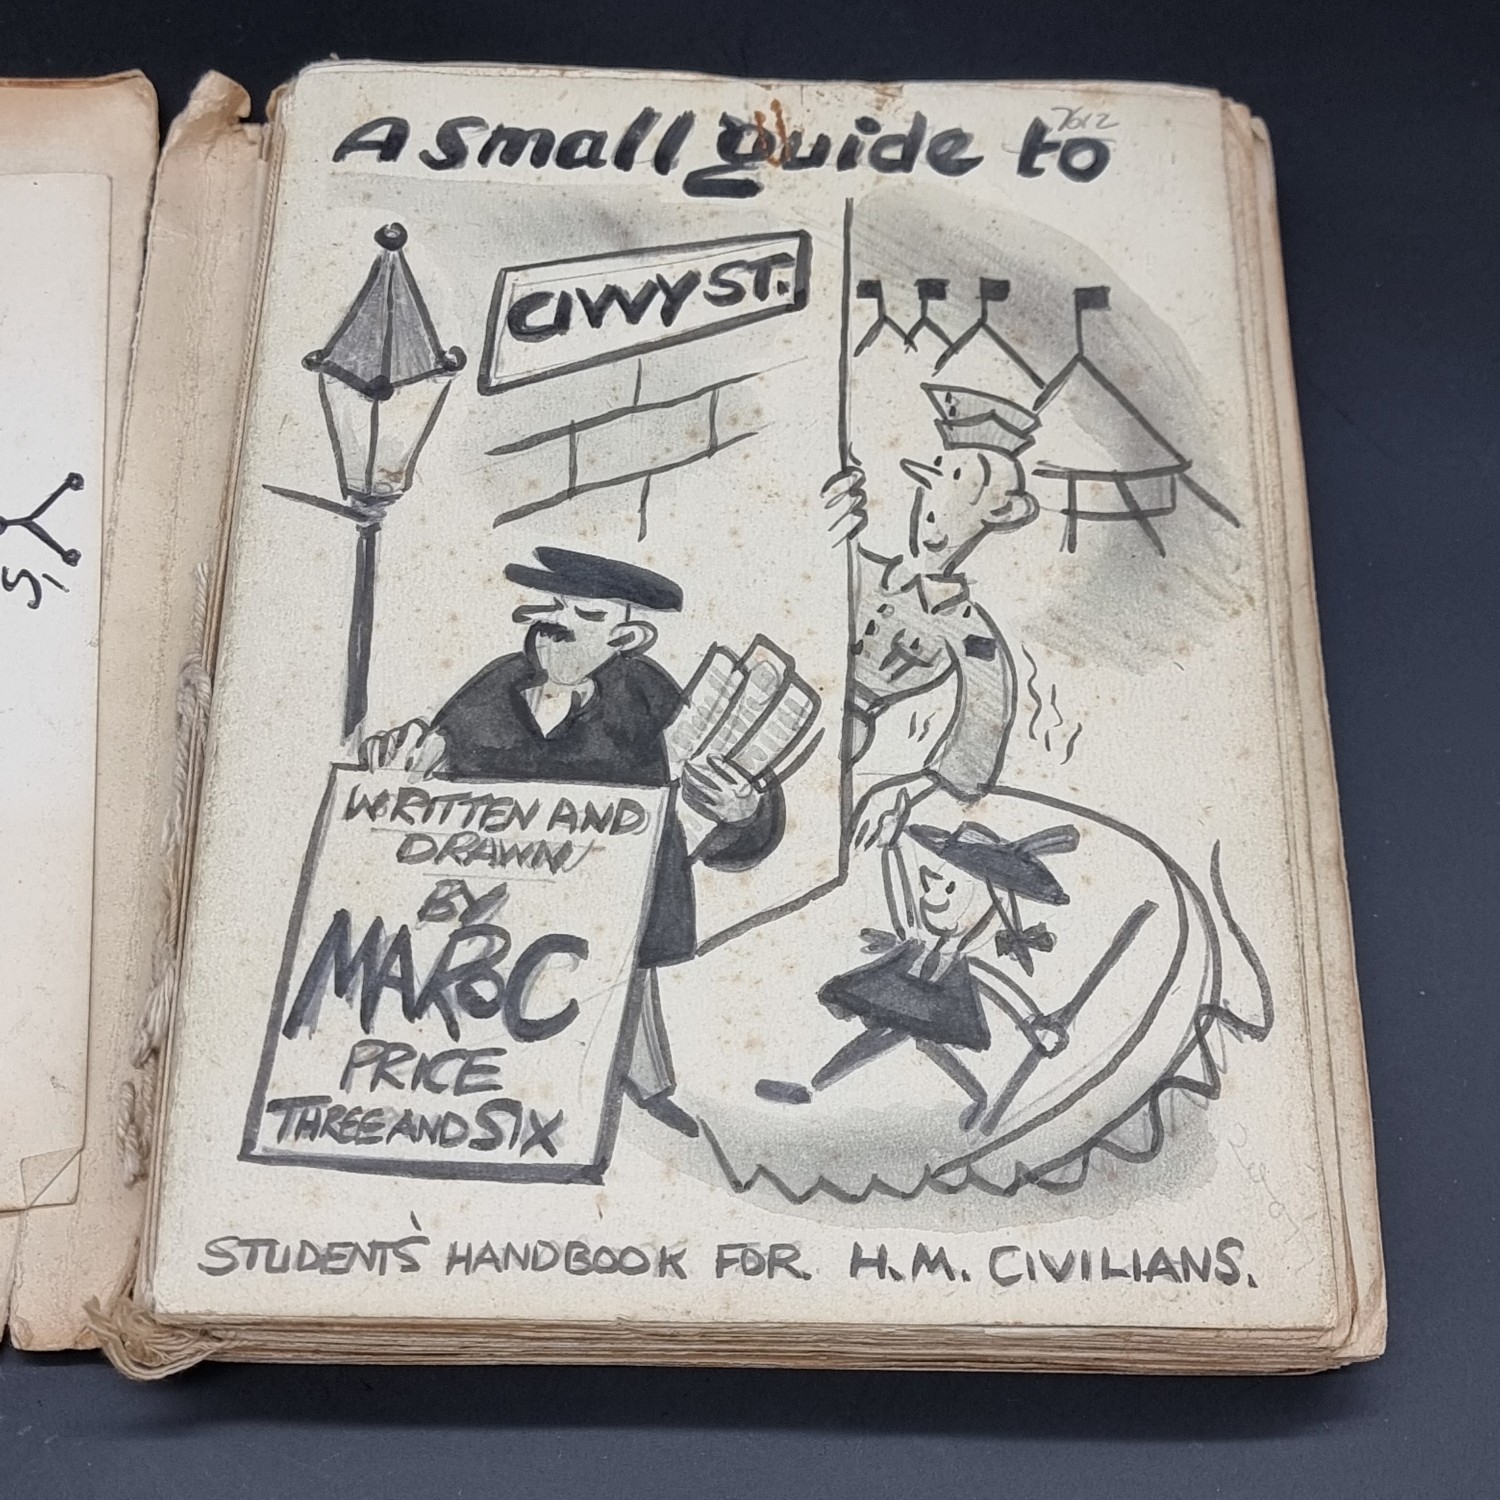 A small guide to
7612
CIVVY ST.
WRITTEN AND
DRAWN
BY
MAROC
PRICE
THREE AND SIX
STUDENTS' HANDBOOK FOR. H.M. CIVILIANS.
S,